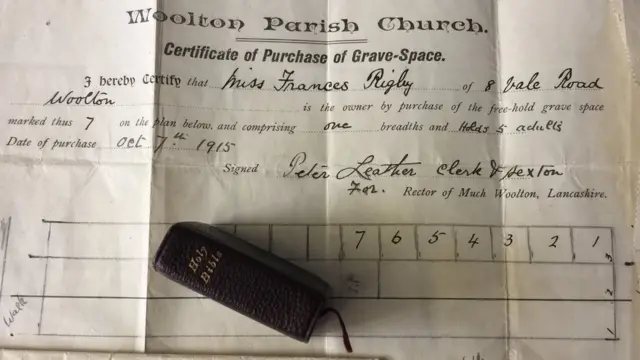 Woolton Parish Church.
Certificate of Purchase of Grave-Space.
I hereby Certify that Miss Frances Rigby of 8 Vale Road
Woolton is the owner by purchase of the free-hold grave space
marked thus 7 on the plan below, and comprising one breadths and Holds 5 adults
Date of purchase Oct 7th 1915
Signed Peter Leather Clerk & Sexton
For. Rector of Much Woolton, Lancashire.
7 6 5 4 3 2 1
3
Holy
Bible
2
1
Walk